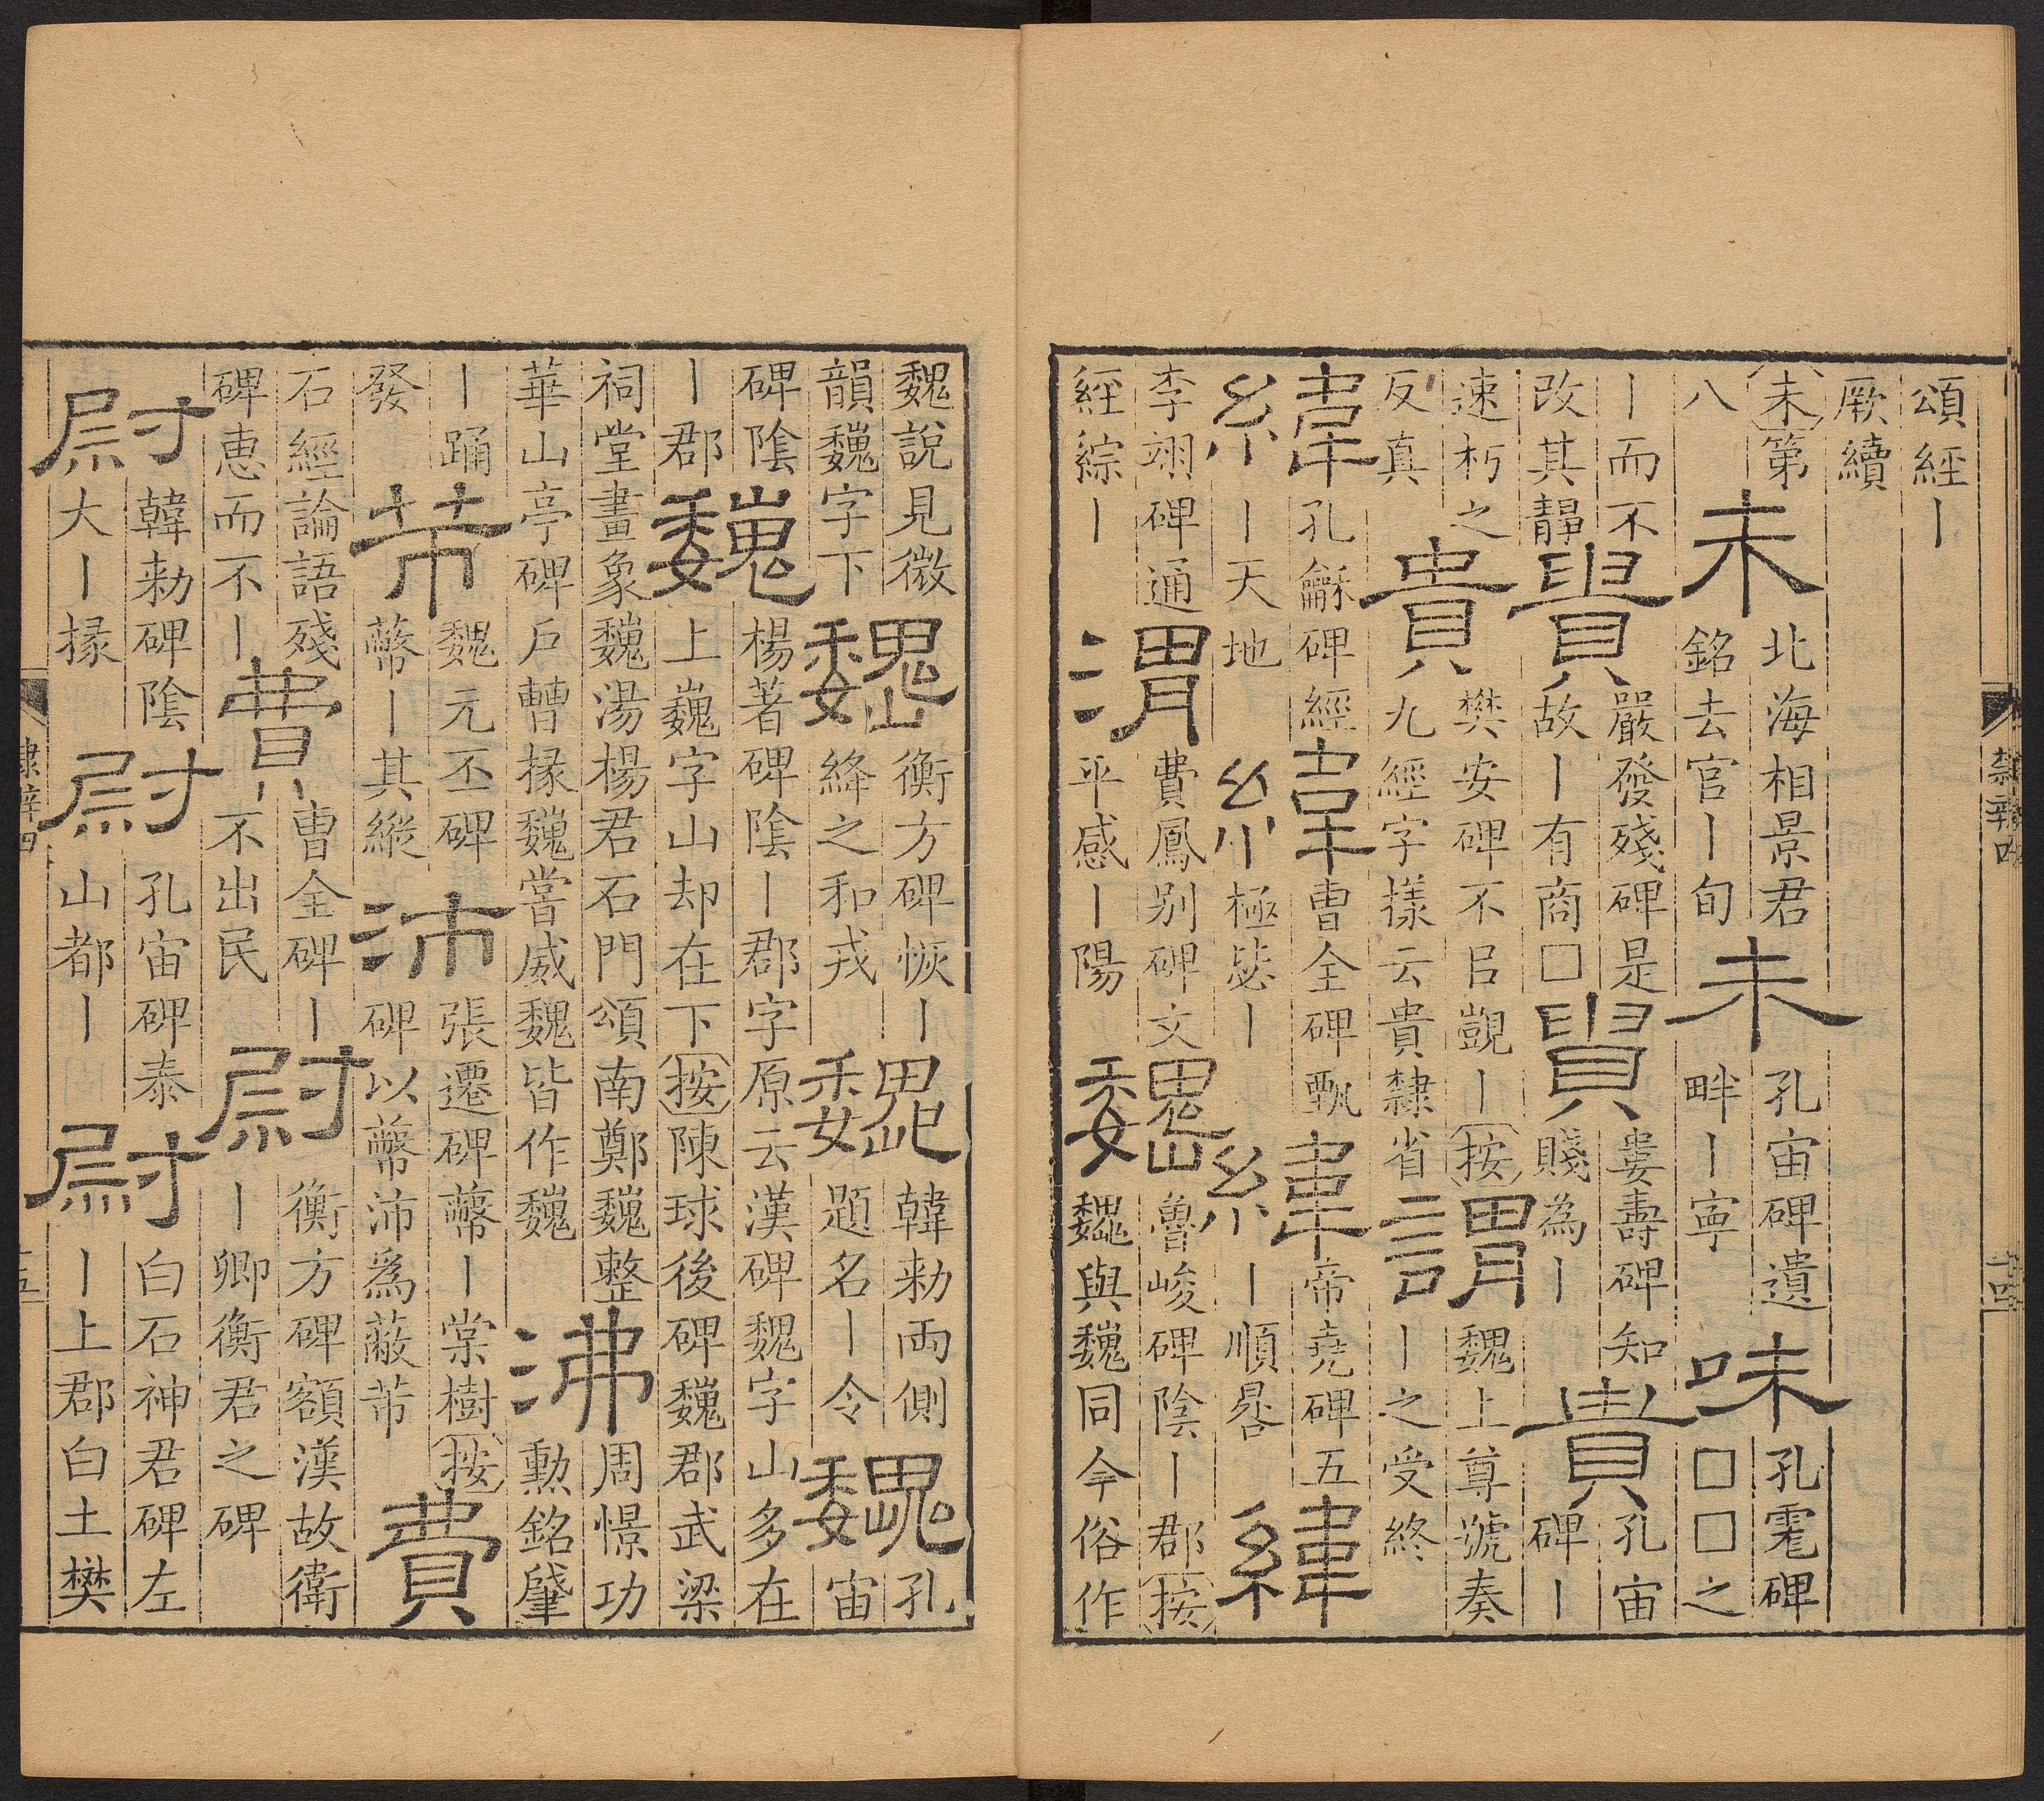 頌經丨厥續
未第八 未 北海相景君銘去官丨旬 未 孔宙碑遺畔丨寧 味 孔碑□□之
丨而不改其靜 貴 嚴發殘碑是故丨有商□ 貴 婁壽碑知賤為丨 貴 孔宙碑丨
速朽之反真 貴 樊安碑不吕覬丨按九經字樣云貴隸省 謂 魏上尊號奏丨之受終
緯 孔龢碑經丨天地 緯 曹全碑甄極毖丨 緯 帝堯碑五丨順晷 緯
李翊碑通經綜丨 渭 費鳳别碑文平感丨陽 魏 魯峻碑陰丨郡按巍與魏同今俗作
隸辨四
十四
魏說見微韻巍字下 魏 衡方碑恢丨絳之和戎 魏 韓勑兩側題名丨令 魏 孔宙
碑陰丨郡 巍 楊著碑陰丨郡字原云漢碑魏字山多在上巍字山却在下按陳球後碑巍郡武梁
祠堂畫象巍湯楊君石門頌南鄭巍整華山亭碑戶曹掾巍嘗威魏皆作巍 沸 周憬功勳銘肇
丨踊發 芾 魏元丕碑蔽丨其縱 沛 張遷碑蔽丨棠樹按碑以蔽沛爲蔽芾 費
石經論語殘碑惠而不丨 費 曹全碑丨不出民 尉 衡方碑額漢故衛丨卿衡君之碑
尉 韓勑碑陰大丨掾 尉 孔宙碑泰山都丨 尉 白石神君碑左丨上郡白土樊
隸辨四
十五